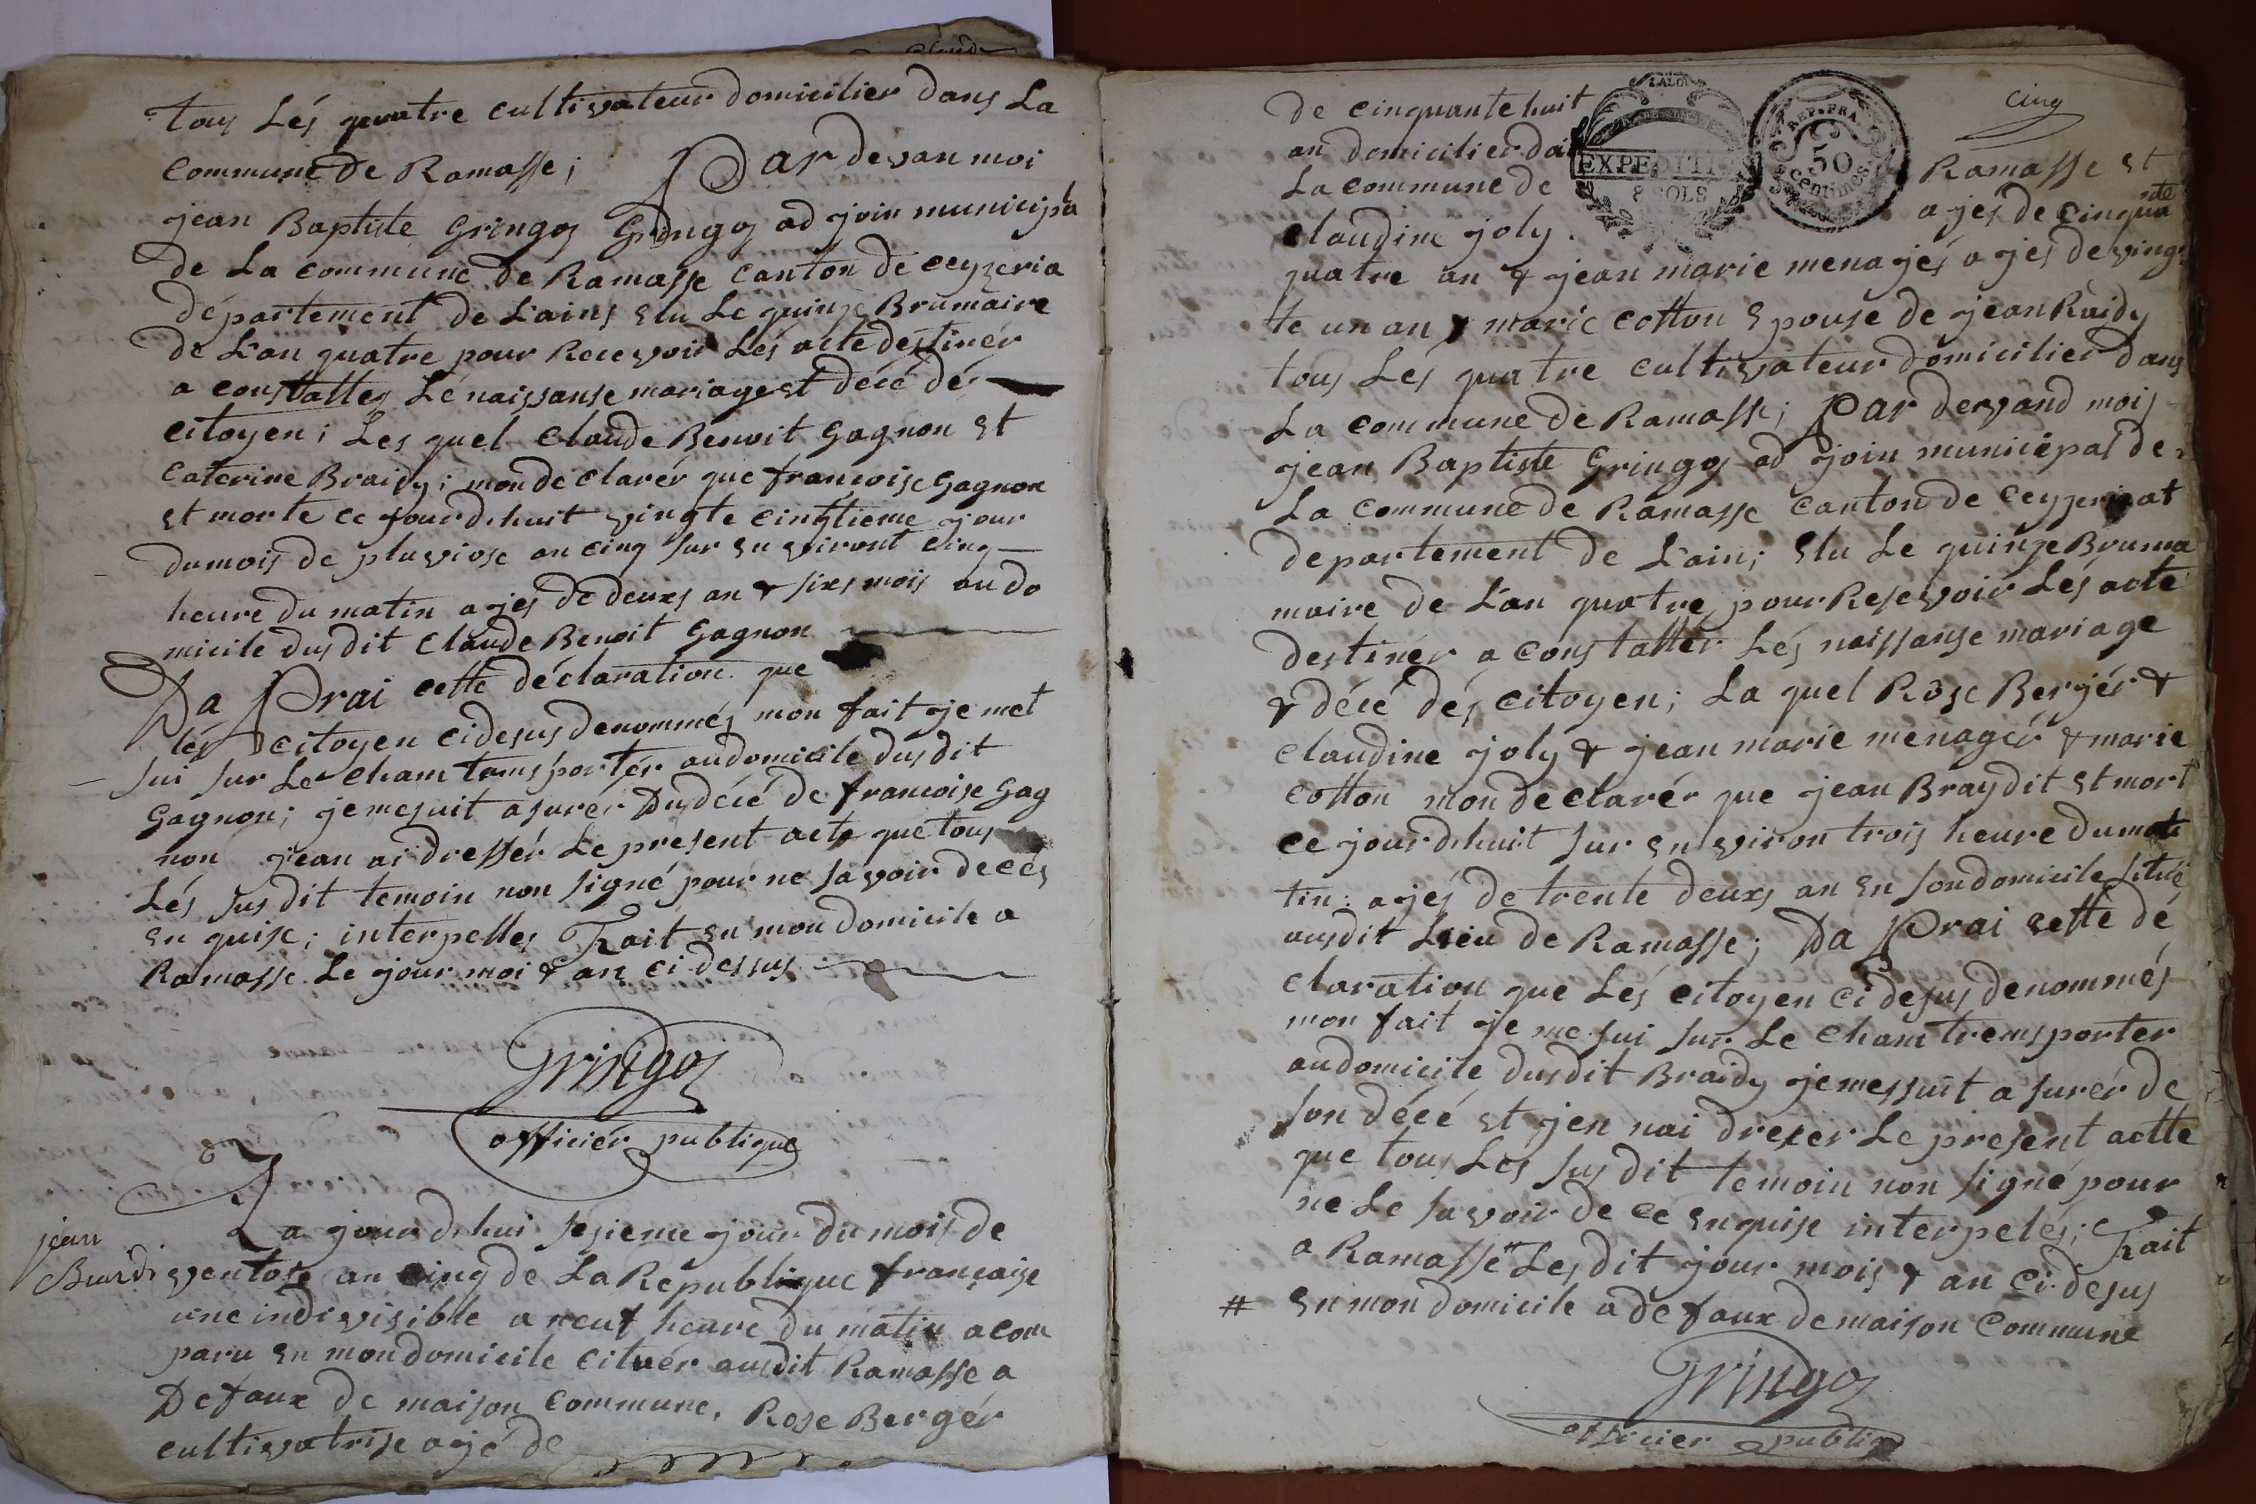 tous Lés quatre cultivateur domicilier dans La
commune de Ramasse; Par devan moi
jean Baptiste Gringoz Gringoz ad join municipa
de La commune de Ramasse canton de ceyzeria
département de L'ains Elu Le quinze Brumaire
de L'an quatre pour Recevoir Lés acte destinér
a constatter Lé naissanse mariage et décé dé
citoyen; Les quel Claude Benoit Gagnon et
Caterine Braidy; mon declarér que francoise Gagnon
et morte ce jourdhuit vingte cinqtieme jour
du mois de pluviose an cinq sur en viront cinq
heure du matin a jes de deuxs an & sixs mois au do
micile dusdit Claude Benoit Gagnon
Da Prai cette déclaration que
lés citoyen cidesus denommés mon fait je met
sui sur Le cham transportér au domicile dusdit
Gagnon; je me suit a surér Du décé de francoise Gag
non jean ai dressér Le present acte que tous
Lés sus dit temoin non signé pour ne savoir de ces
en quise; interpelles Fait en mon domicile a
Ramasse Le jour moi & an ci dessus
Gringoz
officiér publique
jean
Buirdi
La jourdhui sesieme jour du mois de
ventose an cinq de La République française
une indivisible a neuf heure du matin a com
paru en mon domicile cituér audit Ramasse a
Defaux de maison commune, Rose Bergér
cultivatrise agé de
cinq
LA LOI
EXPEDITION
8 SOLS
REP. FRA.
50
centimes
de cinquante huit
an domicilier da
La commune de Ramasse et
claudine joly. a jes de cinqua
nte
quatre an & jean marie menajés a jes de vingt
te un an & marie cotton Epouse de jean Raidy
tous Les quatre cultivateur domicilier dans
La commune de Ramasse; Par devand mois
jean Baptiste Gringoz ad join municipas de
La commune de Ramasse canton de ceyzeriat
departement de L'ain; Elu Le quinze Bruma
maire de L'an quatre pour Resevoir Lés acte
destinér a constattér Lés naissanse mariage
& décé dés citoyen; La quel Rose Bergér &
claudine joly & jean marie menagér & marie
cotton mon declarér que jean Braydit et mort
ce jourdhuit sur en viron trois heure du mati
tin; a jés de trente deuxs an en son domicile situé
ausdit Lieu de Ramasse; Da Prai sette dé
claration que Lés citoyen ci desus denommés
mon fait je me sui sur Le cham transporter
au domicile dusdit Braidy je mes suit a surér de
son décé et jen nai drexer Le present actte
que tous Les sus dit temoin non signé pour
ne Le savoir de ce enquise interpelés; Fait
a Ramasse Les dit jour mois & an ci desus
# en mon domicile a defaux de maison Commune
Gringoz
officier public